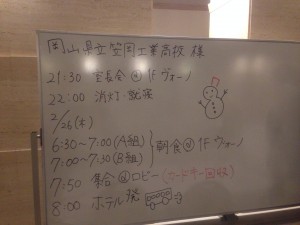 岡山県立笠岡工業高校 様
21:30 室長会 @ 1F ヴォーノ
22:00 消灯・就寝
2/26(木)
6:30~7:00(A組)
7:00~7:30(B組)
朝食@1F ヴォーノ
7:50 集合@ロビー(カードキー回収)
8:00 ホテル発